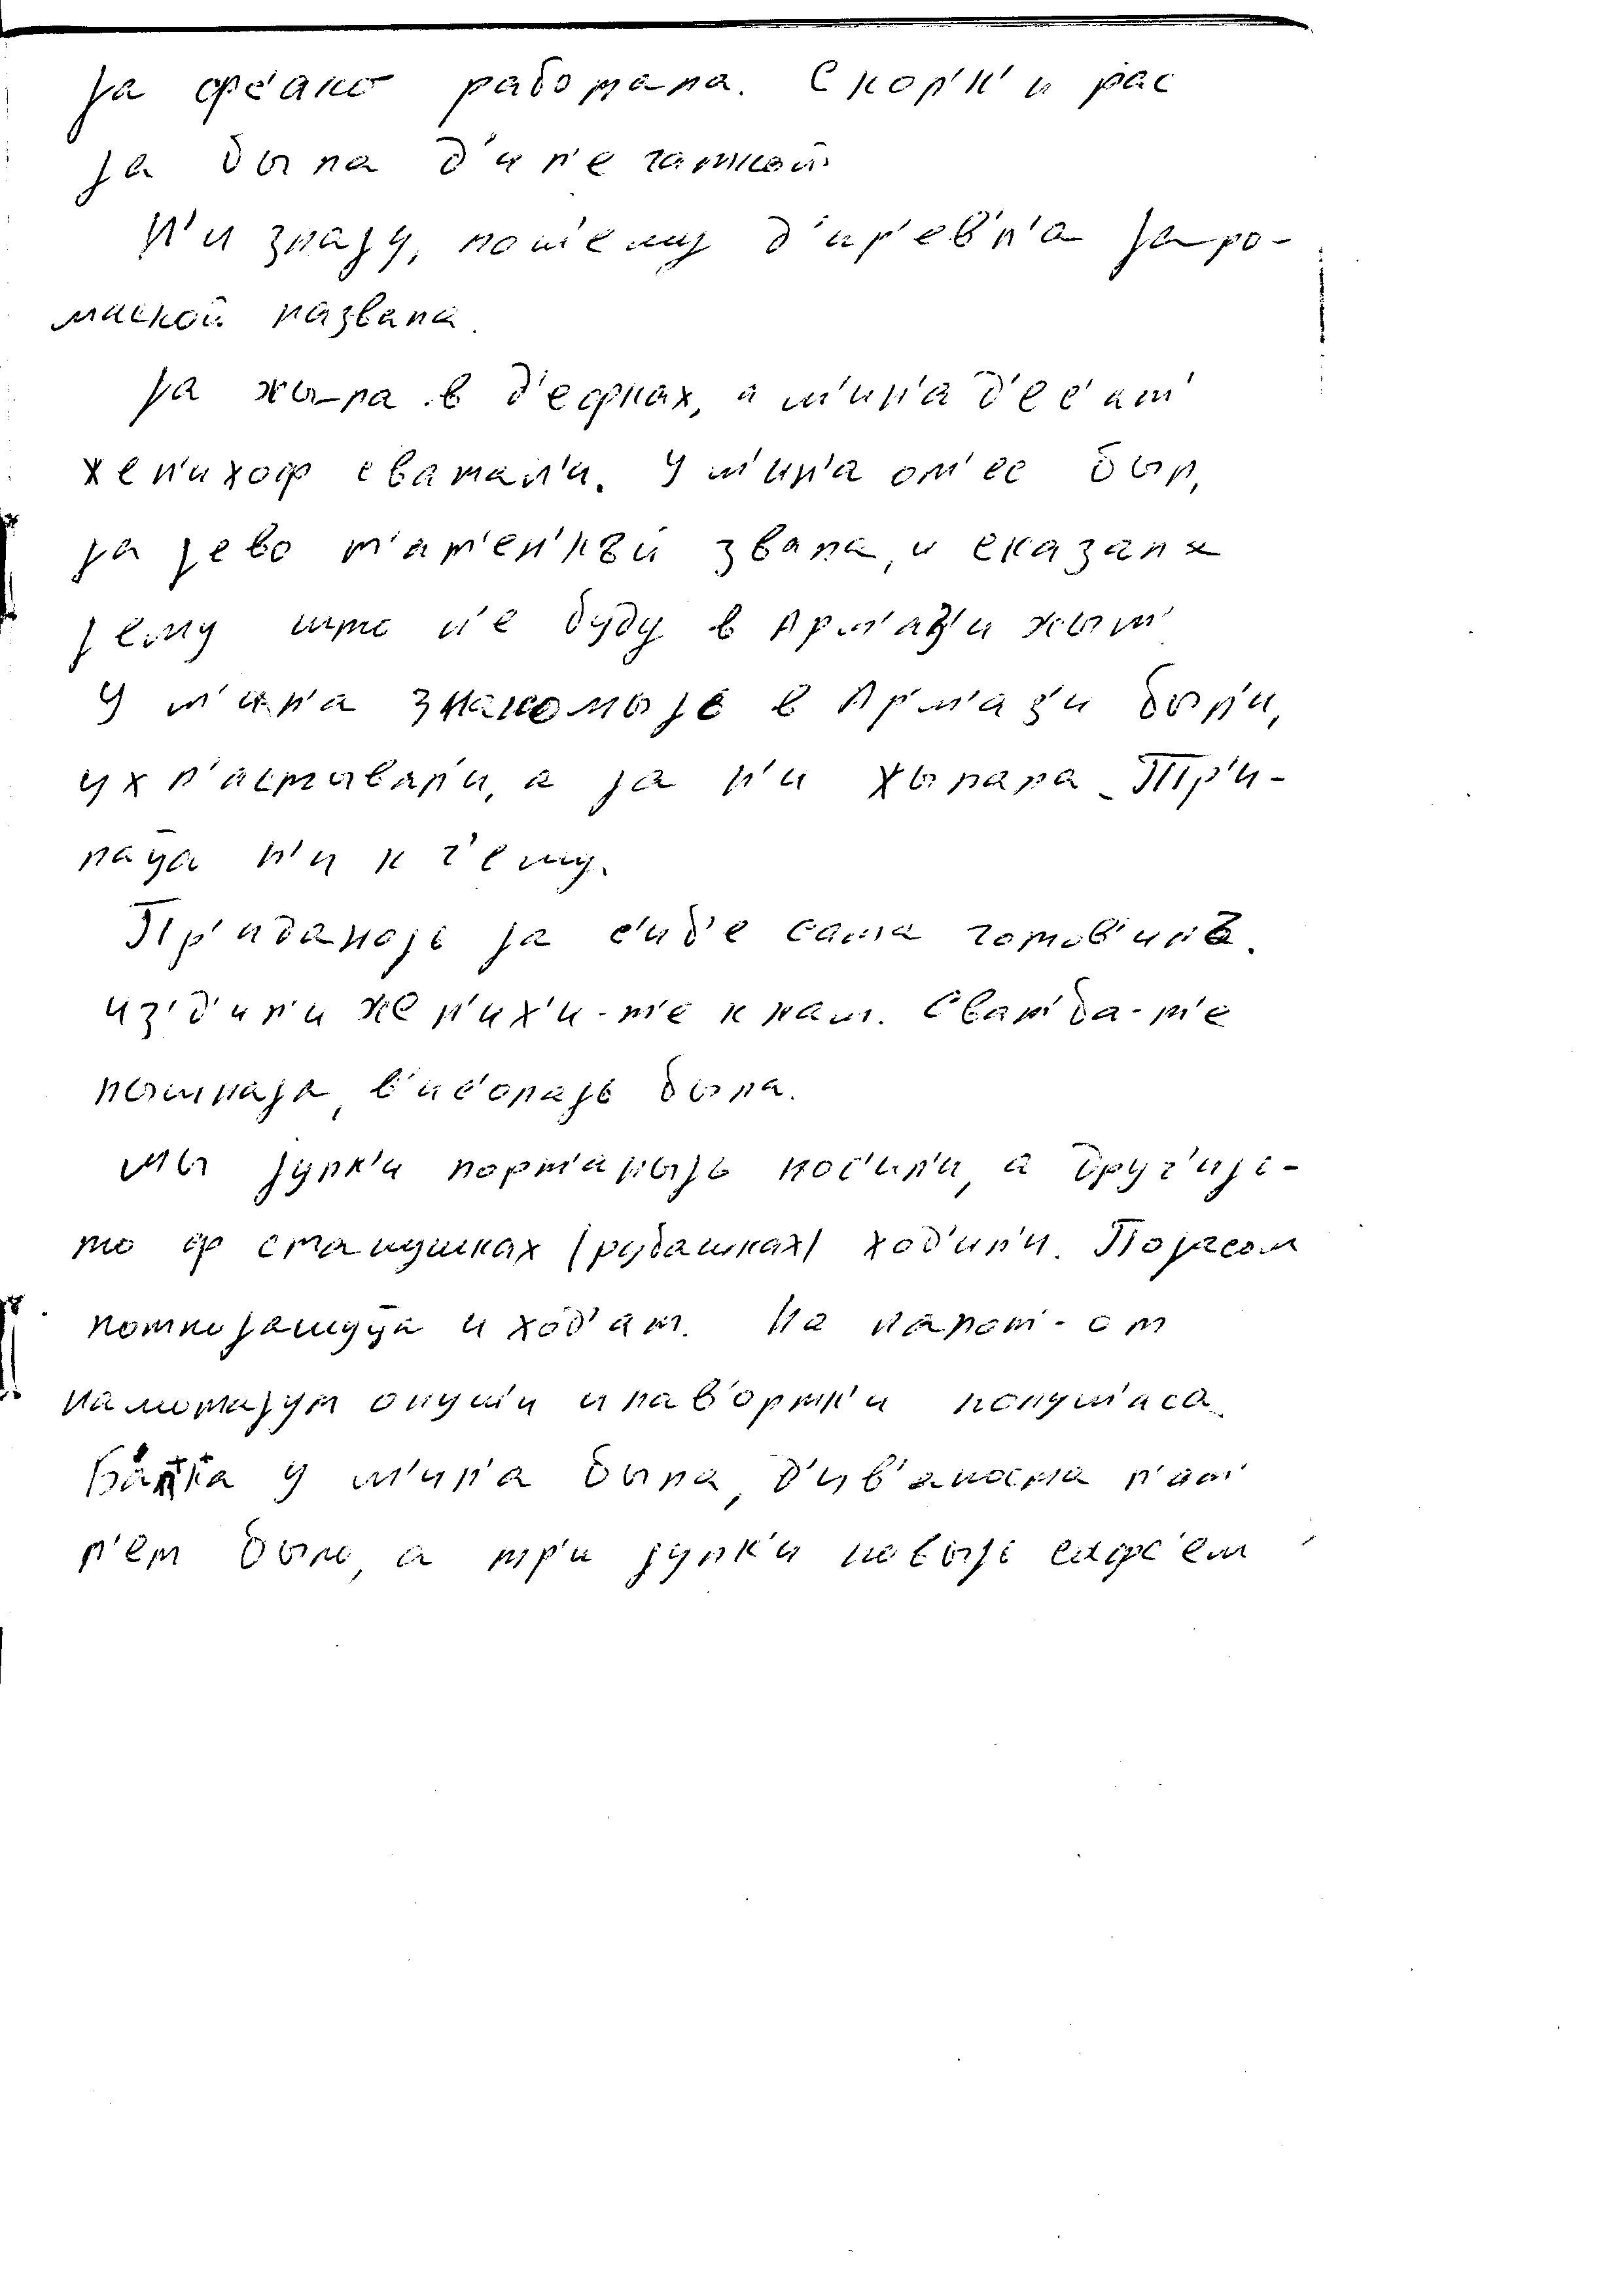 jа фс'ако работала. Скол'к'и рас
jа была д'ил'егаткой
Н'и знаjу, поч'ему д'ир'ев'н'а jаро-
мской названа.
jа жыла в д'ефках, а м'ин'а д'ес'ат'
жен'ихоф сватал'и. У м'ин'а от'ес был,
jа jево т'ат'ен'кай звала, и сказала
jему што н'е буду в Арм'аз'и жыт'
У м'ин'а знакомыjе в Арм'аз'и были,
ухл'астывал'и, а jа н'и хылала. Пр'и-
лаца н'и к ч'ему.
Пр'иданоjе jа с'иб'е сама готов'ила.
из'д'ил'и жен'их'и-т'е к нам. Сват'ба-т'е
пышнаjа, в'ис'олаjе была.
Мы jупк'и порт'аныjе нос'ил'и, а друг'иjе-
то ф станушках (рубашках) ход'ил'и. Поjасом
потпоjашуца и ход'ат. На лапот'-от
намотаjут онуч'и и пав'ортк'и
у м'ин'а была, д'ив'аноста л'ат'
л'ет было, а тр'и jупк'и новыjе сафс'ем